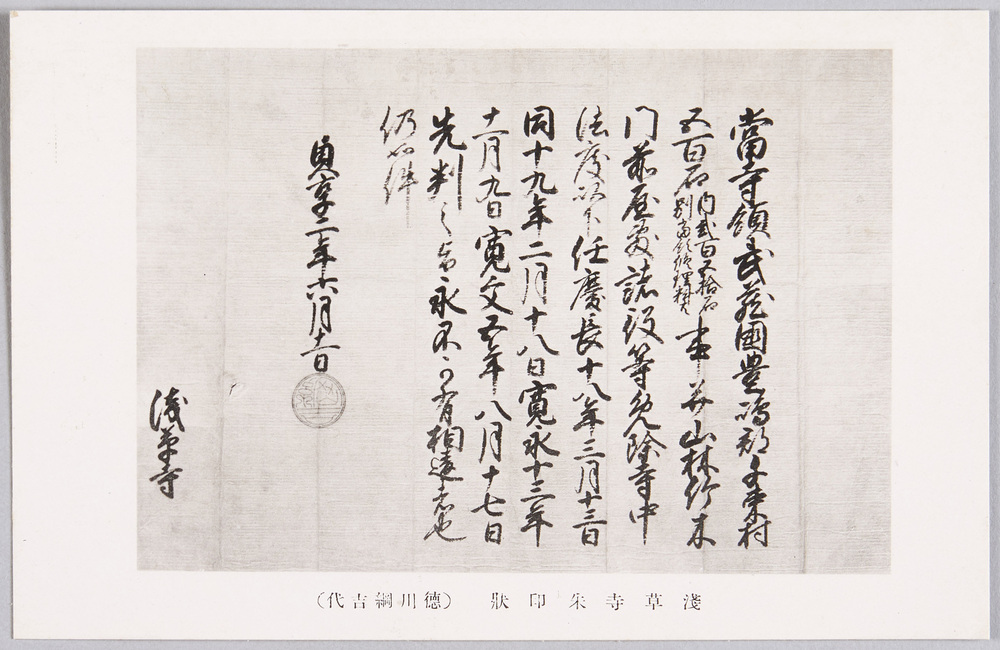 當寺領武蔵國豊嶋郡千束村
五百石内弐百五拾石別當領修理料事并山林竹木
門前屋敷諸役等免除寺中
法度以下任慶長十八年三月十三日
同十九年二月十八日寛永十三年
十一月九日寛文五年八月十七日
先判之旨永不可有相違者也
仍如件
貞享二年六月十一日
浅草寺
淺草寺朱印狀 (德川綱吉代)